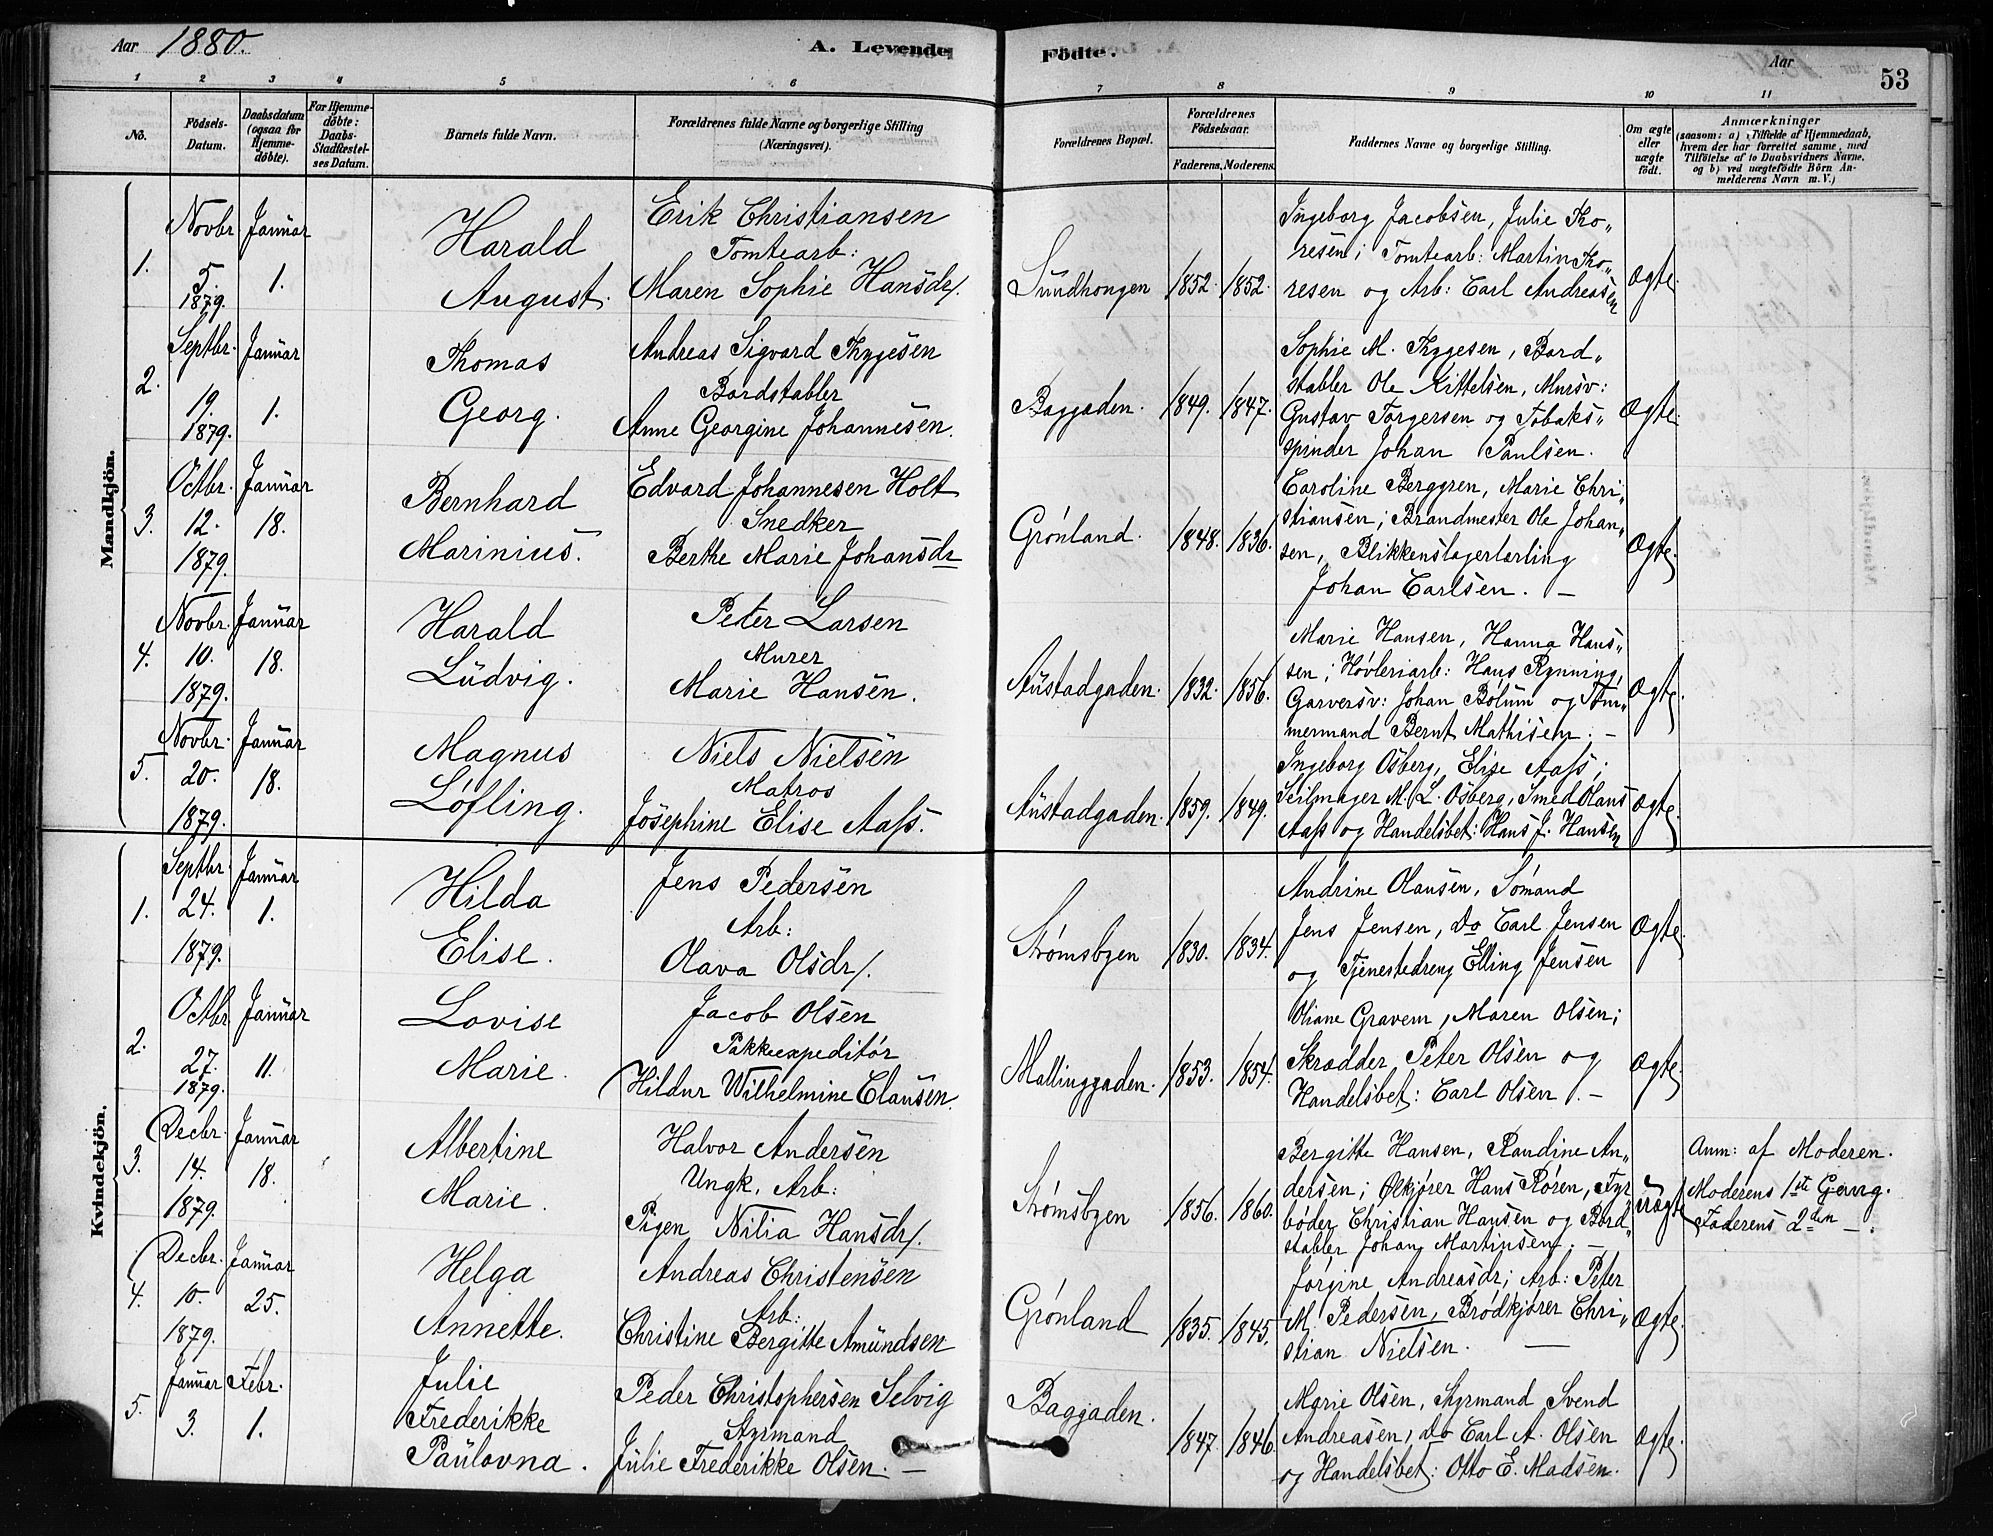 Aar 1880. A. Levende Födte. Aar 53
1 2 3 4 5 6 7 8 9 10 11
No. Födsels-Datum. Daabsdatum (ogsaa for Hjemmedöbte). For Hjemmedöbte: Daabs-Stadfæstelses Datum. Barnets fulde Navn. Forældrenes fulde Navne og borgerlige Stilling (Næringsvei). Forældrenes Bopæl. Forældrenes Födselsaar. Faderens. Moderens. Faddernes Navne og borgerlige Stilling. Om ægte eller uægte födt. Anmærkninger (saasom: a) i Tilfælde af Hjemmedaab, hvem der har forrettet samme, med Tilföielse af to Daabsvidners Navne, og b) ved uægtefödte Börn Anmelderens Navn m. V.)
Mandkjön.
1. Novbr 5. 1879. Januar 1.
Harald
August.
Erik Christiansen
Tomtearb:
Maren Sophie Hansdr.
Sundhougen 1852. 1852.
Ingeborg Jacobsen, Julie Tho„
resen; Tomtearb: Martin Tho„
resen og Arb: Carl Andreasen
Ægte.
2. Septbr. 19. 1879. Januar 1.
Thomas
Georg.
Andreas Sigvard Thygesen
Bordstabler
Anne Georgine Johannesen.
Baggaden. 1849. 1847.
Sophie M. Thygesen, Bord„
stabler Ole Kittelsen, Mursv:
Gustav Torgersen og Tobaks„
spinder Johan Paulsen.
Ægte.
3. Octbr. 12. 1879. Januar 18.
Bernhard
Marinius.
Edvard Johannesen Holt
Snedker
Berthe Marie Johansdr
Grønland. 1848. 1836.
Caroline Berggren, Marie Chri„
stiansen; Brandmester Ole Johan„
sen, Blikkenslagerlærling
Johan Carlsen. —
Ægte.
4. Novbr. 10. 1879. Januar 18.
Harald
Ludvig.
Peter Larsen
Murer
Marie Hansen.
Austadgaden. 1832. 1856.
Marie Hansen, Hanna Hans„
sen; Høvleriarb: Hans Rynning,
Garversv: Johan Bølum og Tøm„
mermand Bernt Mathisen. —
Ægte.
5. Novbr. 20. 1879. Januar 18.
Magnus
Løfling.
Niels Nielsen
Matros
Josephine Elise Aass.
Austadgaden. 1859. 1849.
Ingeborg Osberg, Elise Aass;
Seilmager M. L. Osberg, Smed Olaus
Aass og Handelsbet: Hans J. Hansen
Ægte.
Kvindekjön.
1. Septbr. 24. 1879. Januar 1.
Hilda
Elise.
Jens Pedersen
Arb:
Olava Olsdr.
Strømsbyen 1830. 1834.
Andrine Olausen, Sømand
Jens Jensen, Do Carl Jensen
og Tjenestedreng Elling Jensen
Ægte.
2. Octbr 27. 1879. Januar 11.
Lovise
Marie.
Jacob Olsen
Pakkexpeditør
Hildur Wilhelmine Clausen.
Mallinggaden. 1853. 1854.
Oliane Gravem, Maren Olsen;
Skrædder Peter Olsen og
Handelsbet: Carl Olsen. —
Ægte.
3. Decbr. 14. 1879. Januar 18.
Albertine
Marie.
Halvor Andersen
Ungk. Arb:
Pigen Nilia Hansdr.
Strømsbyen 1856. 1860.
Bergitte Hansen, Randine An„
dersen; Ølkjører Hans Røren, Fyr„
bøder Christian Hansen og Bord„
stabler Johan Martinsen. —
uægte
Anm: af Moderen.
Moderens 1ste Gang.
Faderens 2den —.
4. Decbr. 10. 1879. Januar 25.
Helga
Annette.
Andreas Christensen
Arb:
Christine Bergitte Amundsen
Grønland 1835. 1845.
Jørgine Andreasdr; Arb: Peter
M. Pedersen, Brødkjører Chri„
stian Nielsen. —
Ægte.
5. Januar 3. Febr. 1.
Julie
Frederikke
Paulovna.
Peder Christophersen Selvig
Styrmand
Julie Frederikke Olsen. —
Baggaden. 1847. 1846.
Marie Olsen, Styrmand Svend
Andreasen, do Carl A. Olsen
og Handelsbet: Otto E. Madsen.
Ægte.